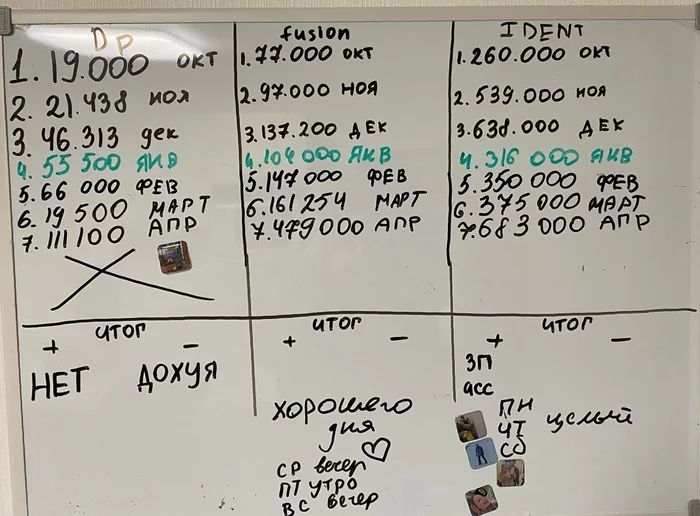 DP
1. 19.000 окт
2. 21.438 ноя
3. 46.313 дек
4. 55 500 ЯКВ
5. 66 000 ФЕВ
6. 19 500 МАРТ
7. 111100 АПР
fusion
1. 77.000 окт
2. 97.000 НОЯ
3. 137.200 ДЕК
4. 104 000 ЯКВ
5. 147000 ФЕВ
6. 161254 МАРТ
7. 479000 АПР
IDENT
1. 260.000 окт
2. 539.000 НОЯ
3. 638.000 ДЕК
4. 316 000 ЯКВ
5. 350 000 ФЕВ
6. 375 000 МАРТ
7. 683 000 АПР
ИТОГ
+ −
НЕТ ДОХУЯ
ИТОГ
+ −
хорошего
дня
СР вечер
ПТ УТРО
ВС вечер
ИТОГ
+ −
ЗП
асс
ПН
ЧТ целый
Сб